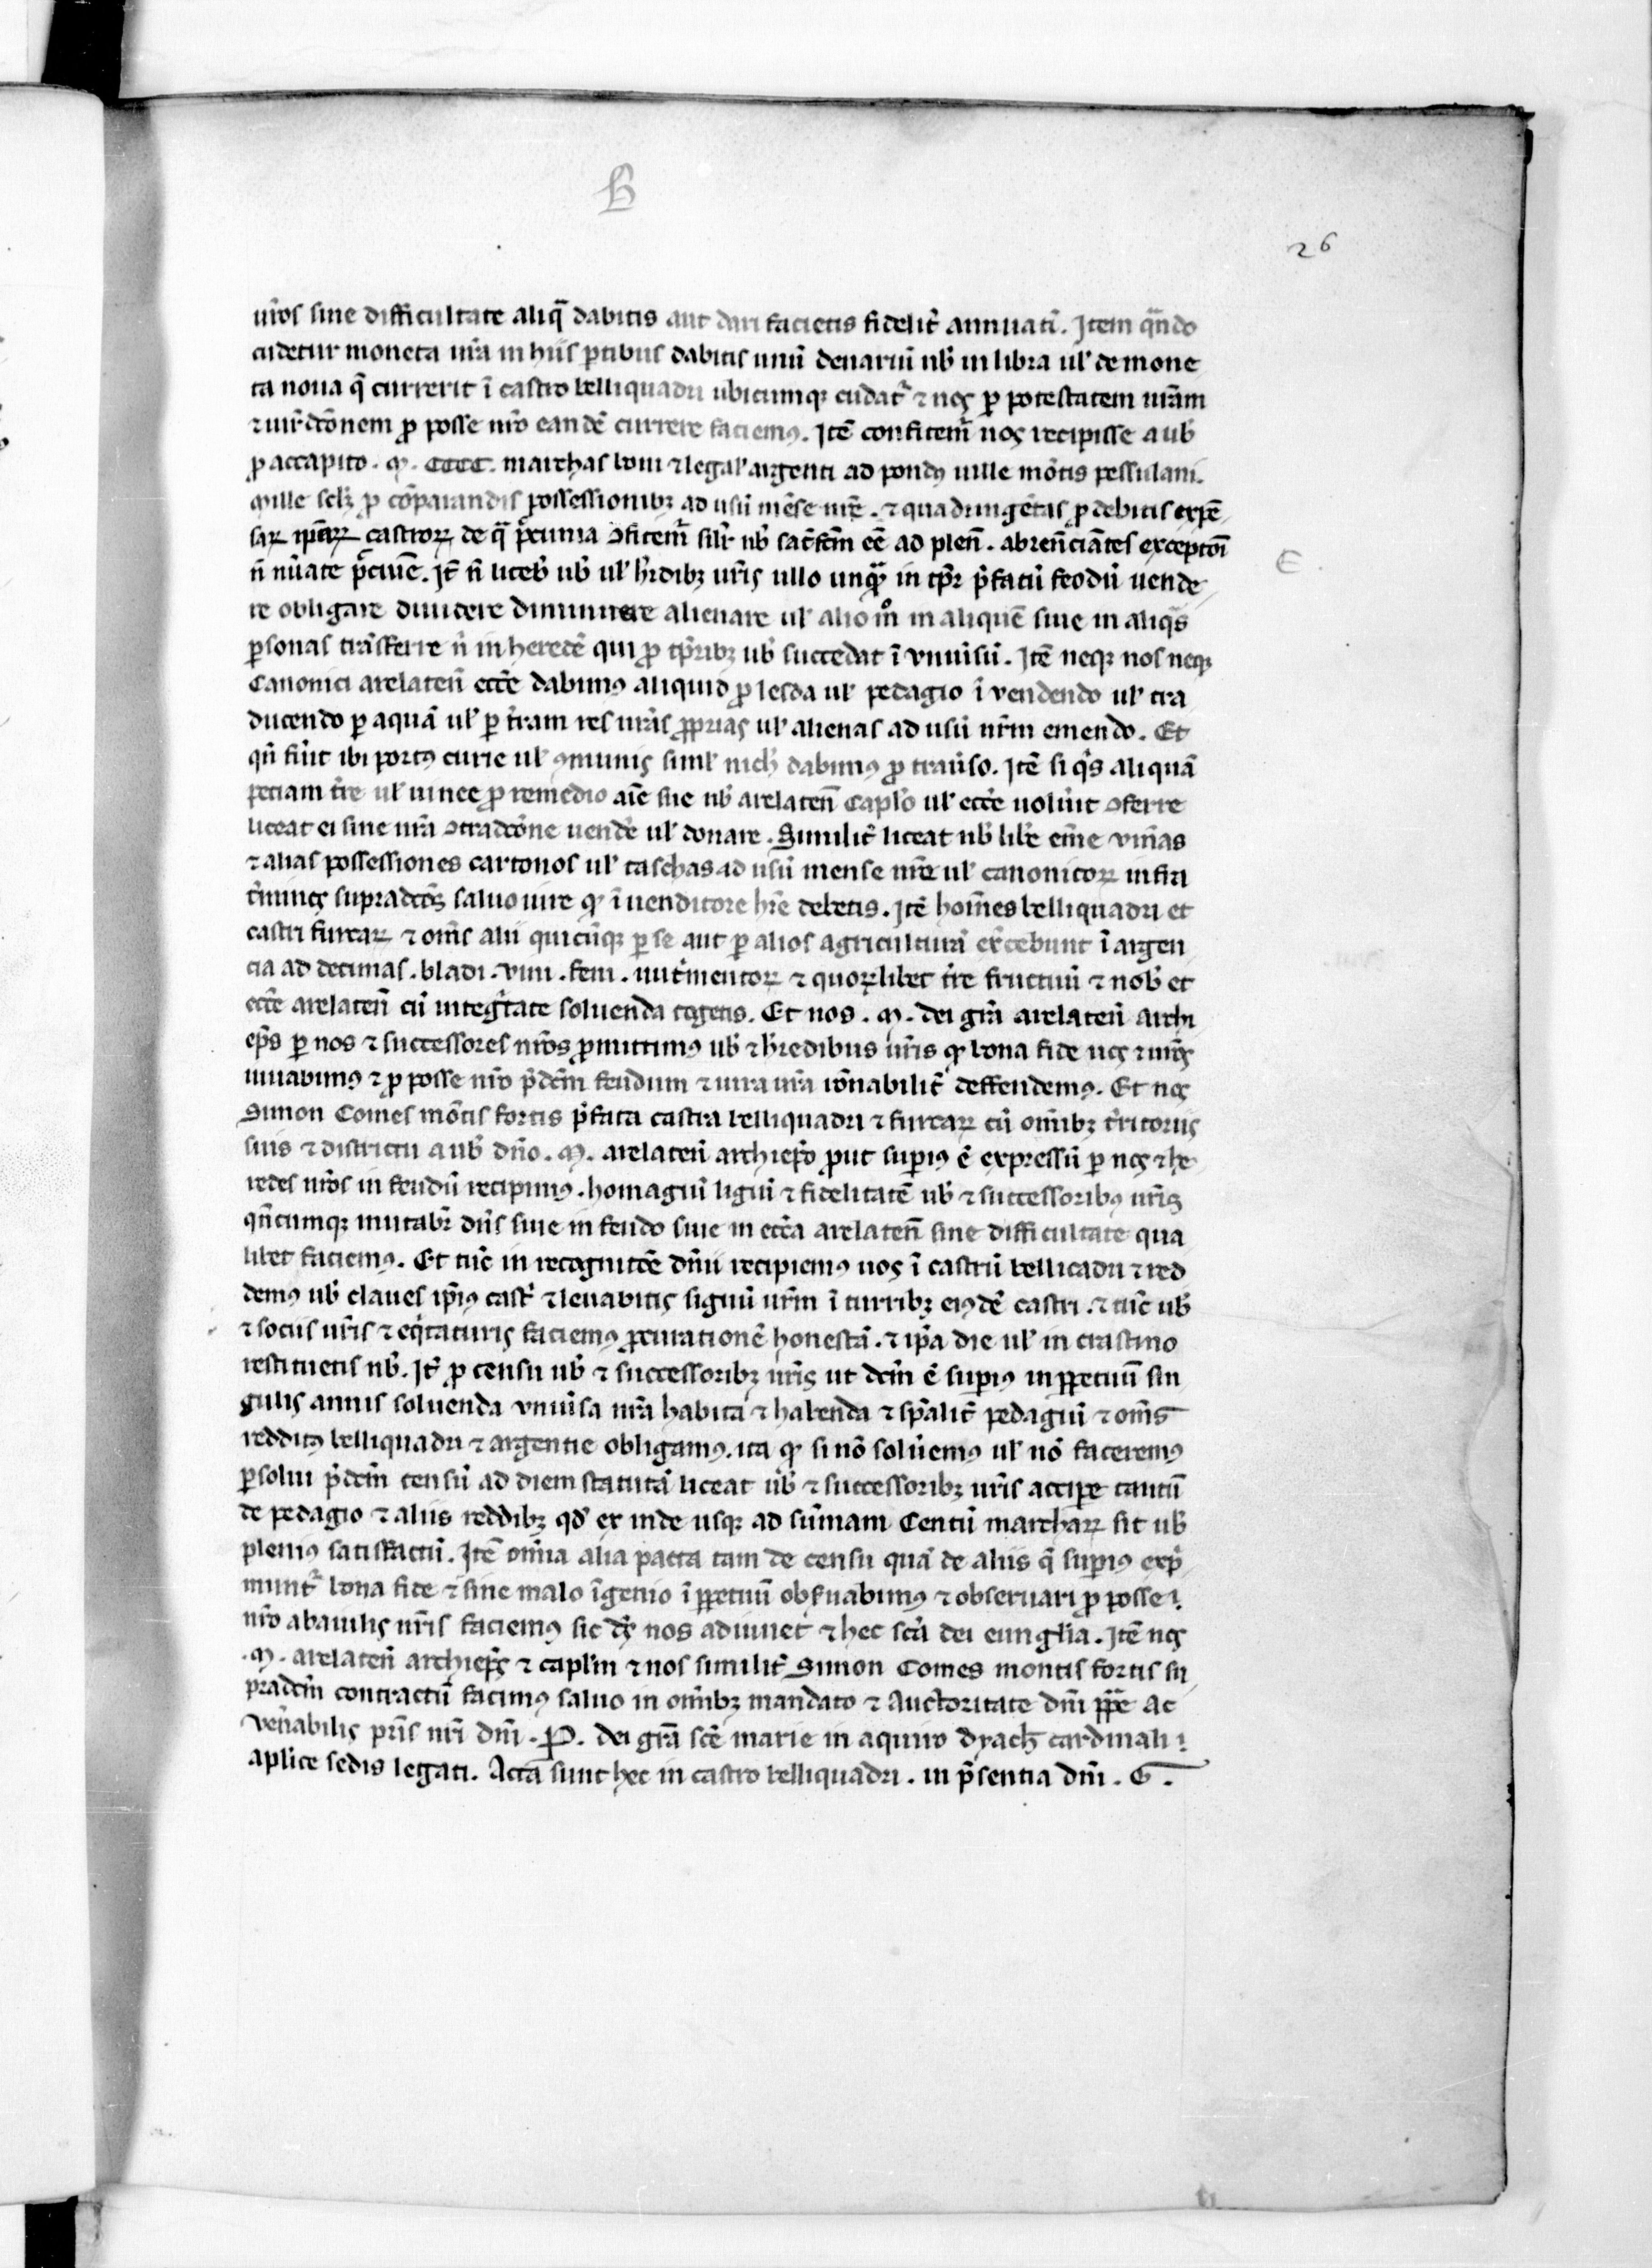 B
26
ur̄os sine difficultate aliq̄ dabitis aut dari facietis fidelit̄ annuati. Item qn̄do
cudetur moneta ur̄a in hiis ꝑtibus dabitis unū denariū nb̄ in libra ul̓ de mone
ta noua q̄ currerit ī castro belliquadri ubicumqꝫ cudat̄ ⁊ nos ꝑ potestatem ur̄am
⁊ iurisdc̄onem ꝓ posse nr̄o eandē currere faciemꝰ. Itē confitem̄ nos recipisse a ub̄
ꝓ accapito. M. CCCC. marchas boni ⁊ legal̓ argenti ad pondꝰ uille mōtis pessulani.
Mille scl̓ꝫ ꝓ cōparandis possessionibꝫ ad usū mēse nr̄e. ⁊ quadringētas ꝓ debitis expē
saꝝ ip̄aꝝ castroꝝ de q̄ pecunia ꝯfitem̄ sil̓r nb̄ satisfcm̄ eē ad plen̄. abren̄ciātes exceptōi
n̄ nūate pecunie. It̄ n̄ liceb̓ ub̄ ul̓ h̄edibꝫ ur̄is ullo unqȝ in tp̄r p̄fatū feodū uende
re obligare diuidere diminuere alienare ul̓ alio mo in aliquē siue in aliqs
ꝑsonas trāsferre n̄ in heredē qui ꝓ tp̄ribꝫ ub̄ succedat ī vniūsū. Itē neqꝫ nos neqꝫ
Canonici arelaten̄ ecc̄e dabimꝰ aliquid ꝓ lesda ul̓ pedagio ī vendendo ul̓ tra
ducendo ꝑ aquā ul̓ ꝑ t̄ram res nr̄as ꝓprias ul̓ alienas ad usū nr̄m emendo. Et
qn̄ fūit ibi portꝰ curie ul̓ ꝯmunis simil̓ nich̓ dabimꝰ ꝓ trāuso. Itē si qis aliquā
peciam t̄re ul̓ uinee ꝓ remedio aīe sue nb̄ arelaten̄ Capl̓o ul̓ ecc̄e uolūit ꝯferre
liceat ei sine ur̄a ꝯtradc̄one uend̄e ul̓ donare. Similit̄ liceat nb̄ lib̓e em̄e vin̄as
⁊ alias possessiones cartonos ul̓ taschas ad usū mense nr̄e ul̓ canonicoꝝ infra
t̄minos supradc̄os saluo iure qȝ ī uenditore hr̄e debetis. Itē hom̄es belliquadri et
castri furcaꝝ ⁊ om̄s alii quicūqꝫ ꝑ se aut ꝑ alios agriculturā ex̄cebunt ī argen
cia ad decimas. bladi. vini. feni. nut̄mentoꝝ ⁊ quoꝝlibet t̄re fructuū ⁊ nob̄ et
ecc̄e arelaten̄ cū integ̓tate soluenda cogetis. Et nos. M. dei gr̄a arelaten̄ Archi
ep̄s ꝑ nos ⁊ successores nr̄os ꝓmittimus ub̄ ⁊ h̄redibus ur̄is qȝ bona fide uos ⁊ ur̄os
iuuabimus ⁊ ꝓ posse nr̄o p̄dcm̄ feudum ⁊ iura ur̄a rōnabilit̄ deffendemꝰ. Et nos
Simon Comes mōtis fortis p̄fata castra belliquadri ⁊ furcaꝝ cū om̄ibꝫ t̄ritoriis
suis ⁊ districtu a ub̄ dn̄o. M. arelaten̄ archiep̄o ꝓut suꝑius ē expressū ꝑ nos ⁊ he
redes nr̄os in feudū recipimꝰ. homagiū ligiū ⁊ fidelitatē ub̄ ⁊ successoribꝰ ur̄is
qn̄cumqꝫ mutabr̄ dn̄s siue in feudo siue in ecc̄a arelaten̄ sine difficultate qua
libet faciemꝰ. Et tūc in recognitōe dn̄ii recipiemus uos ī castrū bellicadri ⁊ red
demꝰ ub̄ claues ip̄ius cast̄ ⁊ leuabitis signū ur̄m ī turribꝫ eiꝰdē castri. ⁊ tūc ub̄
⁊ sociis ur̄is ⁊ eqͥtaturis faciemꝰ ꝓcurationē honestā. ⁊ ip̄a die ul̓ in crastino
restituetis nb̄. It̄ ꝓ censu ub̄ ⁊ successoribꝫ ur̄is ut dcm̄ ē suꝑius in ꝑpetuū sin
gulis annis soluenda vniūsa nr̄a habita ⁊ habenda ⁊ sp̄alit̄ pedagiū ⁊ om̄s
redditꝰ belliquadri ⁊ argentie obligamꝰ. ita qȝ si nō soluēmus ul̓ nō faceremꝰ
ꝑsolui p̄dcm̄ censū ad diem statutā liceat ub̄ ⁊ successoribꝫ ur̄is accipe tantū
de pedagio ⁊ aliis reddibꝫ qd̓ ex inde usqꝫ ad sūmam Centū marchaꝝ sit ub̄
plenius satisfactū. Itē om̄ia alia pacta tam de censu quā de aliis q̄ suꝑius exp̄
munt̄ bona fide ⁊ sine malo īgenio ī ꝑpetuū obs̄uabimꝰ ⁊ obseruari ꝓ posse
nr̄o a baiulis nr̄is faciemꝰ sic ds̄ nos adiuuet ⁊ hec scā dei euangl̓ia. Itē nos
.M. arelaten̄ archiep̄s ⁊ capl̓m ⁊ nos similit̄ Simon Comes montis fortis su
pradcm̄ contractū facimus saluo in om̄ibꝫ mandato ⁊ Auctoritate dn̄i pp̄e Ac
ven̄abilis pr̄is nr̄i dn̄i. P. dei gr̄a sc̄e marie in aquiro dyach̓ cardinali
aplice sedis legati. Acta sunt hec in castro belliquadri. in p̄sentia dn̄i. G.
E.